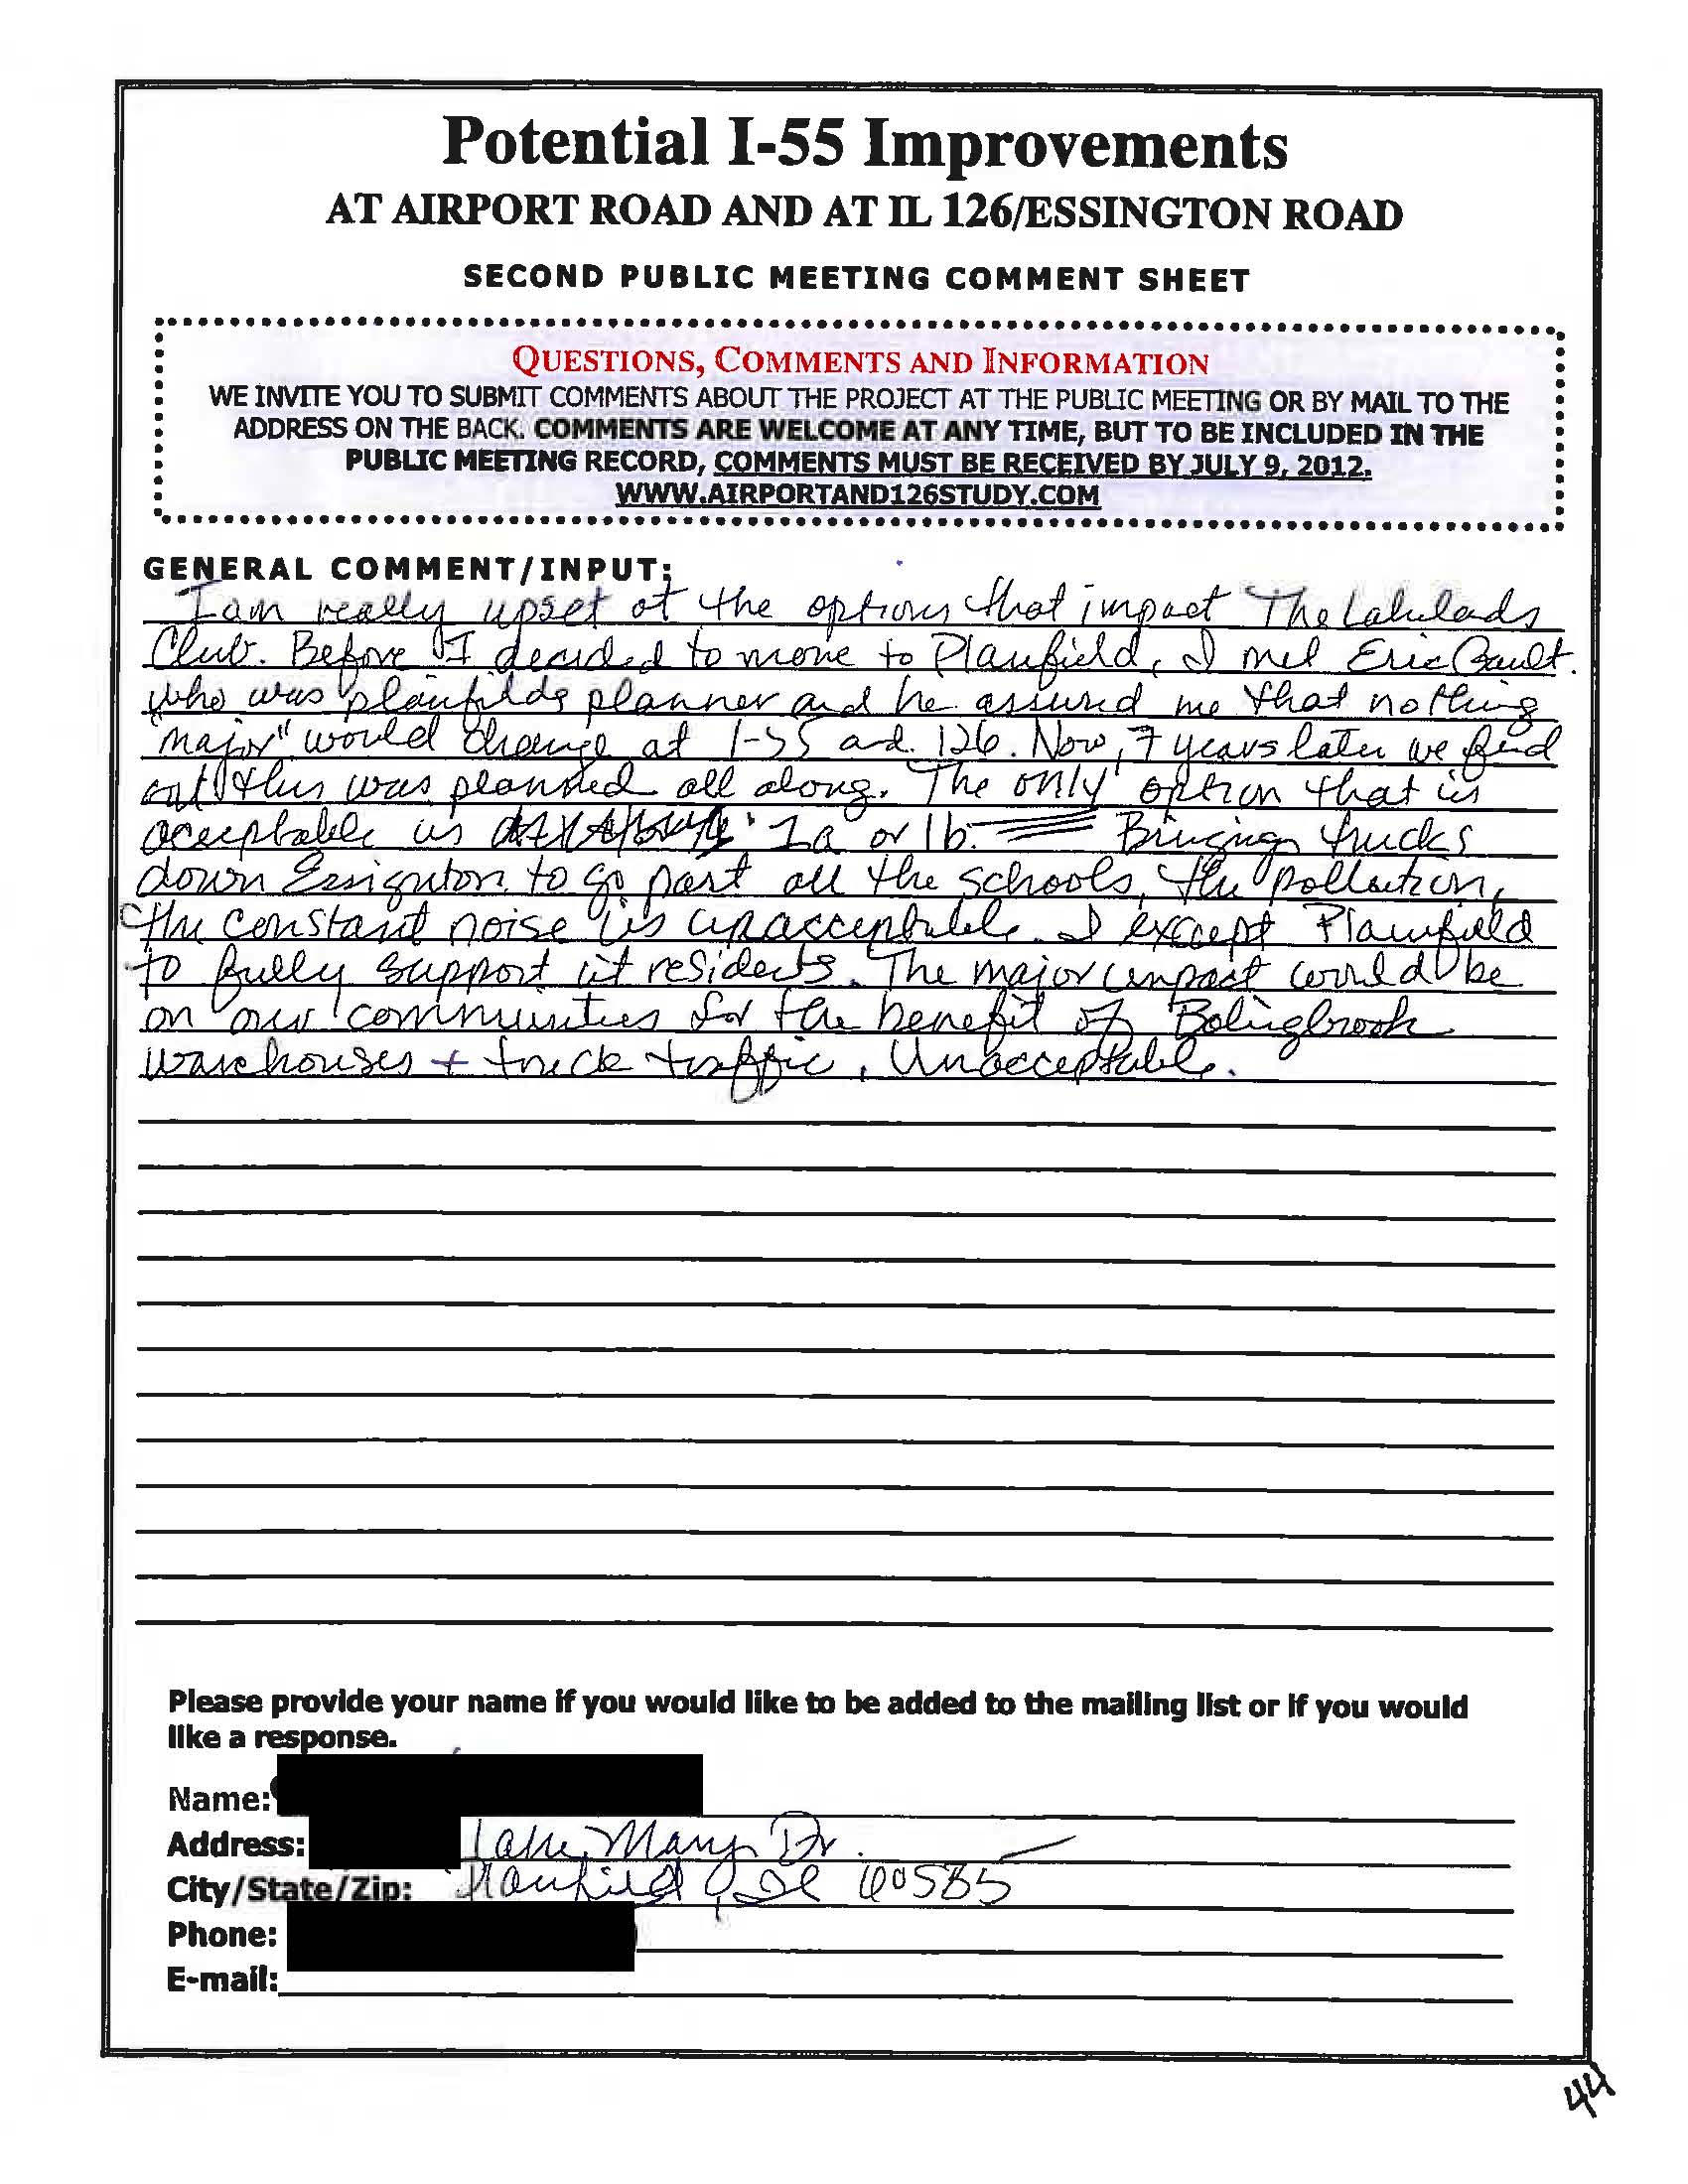 Potential I-55 Improvements
AT AIRPORT ROAD AND AT IL 126/ESSINGTON ROAD
SECOND PUBLIC MEETING COMMENT SHEET
QUESTIONS, COMMENTS AND INFORMATION
WE INVITE YOU TO SUBMIT COMMENTS ABOUT THE PROJECT AT THE PUBLIC MEETING OR BY MAIL TO THE
ADDRESS ON THE BACK. COMMENTS ARE WELCOME AT ANY TIME, BUT TO BE INCLUDED IN THE
PUBLIC MEETING RECORD, COMMENTS MUST BE RECEIVED BY JULY 9, 2012.
WWW.AIRPORTAND126STUDY.COM
GENERAL COMMENT/INPUT:
I am really upset at the options that impact The Lakelads
Club. Before I decided to move to Plainfield, I met Eric Gault.
who was plainfilds planner and he assured me that nothing
"major" would change at I-55 and 126. Now, 7 years later we find
out this was planned all along. The only option that is
acceptable is 1a or 1b. Bringing trucks
down Essington to go past all the schools, the pollution,
the constant noise is unacceptable. I except Plainfield
to fully support it residents. The major impact would be
on our communities for the benefit of Bolingbrook
warehouses + truck traffic. Unacceptable.
Please provide your name if you would like to be added to the mailing list or if you would
like a response.
Name:
Address: Lake Mary Dr.
City/State/Zip: Plainfield, Il 60585
Phone:
E-mail:
44